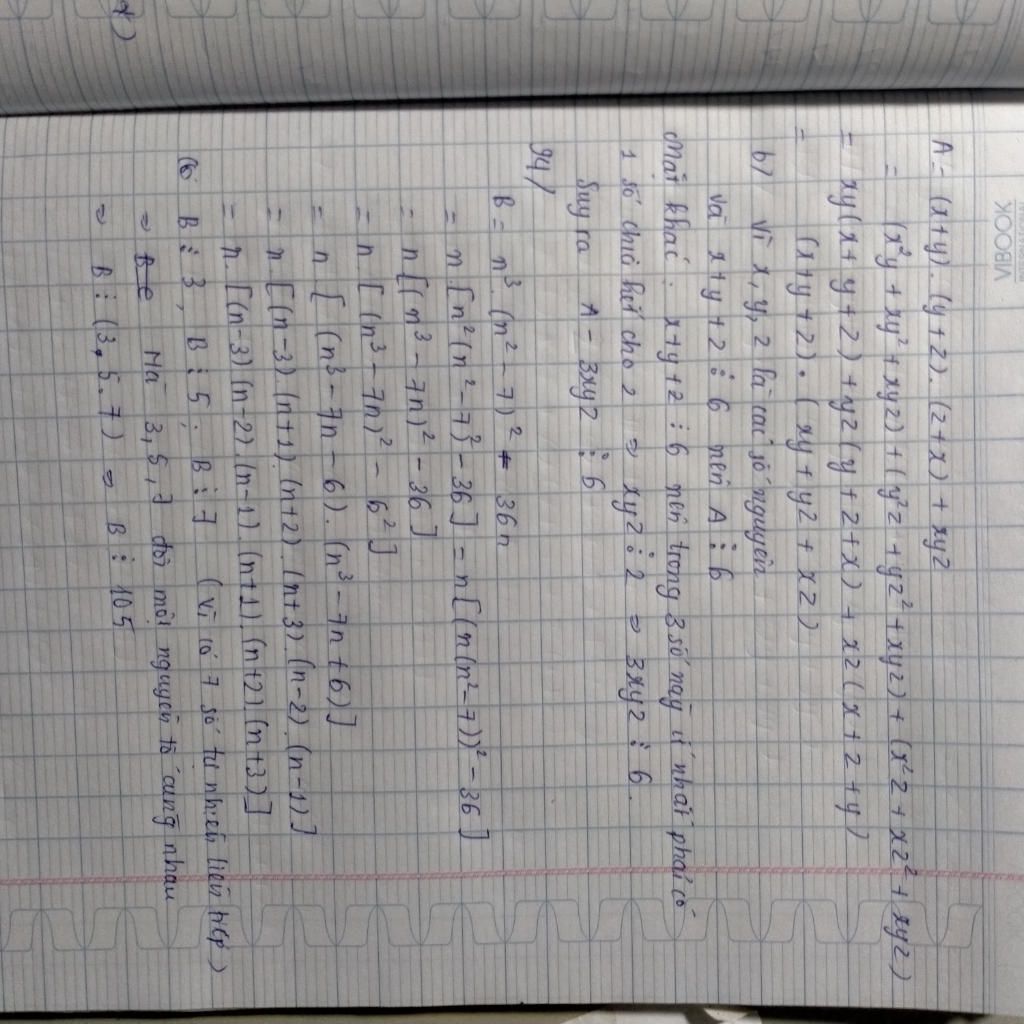 VIBOOK
A = (x+y).(y+z).(z+x) + xyz
= (x²y + xy² + xyz) + (y²z + yz² + xyz) + (x²z + xz² + xyz)
= xy(x+y+z) + yz(y+z+x) + xz(x+z+y)
= (x+y+z).(xy+yz+xz)
b) Vì x, y, z là các số nguyên
và x+y+z ⋮ 6 nên A ⋮ 6
Mặt khác: x+y+z ⋮ 6 nên trong 3 số này ít nhất phải có
1 số chia hết cho 2 ⇒ xyz ⋮ 2 ⇒ 3xyz ⋮ 6.
Suy ra A - 3xyz ⋮ 6
94/
B = n³(n² - 7)² - 36n
= n.[n²(n² - 7)² - 36] = n[(n(n² - 7))² - 36]
= n[(n³ - 7n)² - 36]
= n.[(n³ - 7n)² - 6²]
= n.[(n³ - 7n - 6).(n³ - 7n + 6)]
= n.[(n-3).(n+1).(n+2).(n+3).(n-2).(n-1)]
= n.[(n-3)(n-2).(n-1).(n+1).(n+2).(n+3)]
Có B ⋮ 3, B ⋮ 5; B ⋮ 7 (Vì có 7 số tự nhiên liên tiếp)
⇒ Mà 3, 5, 7 đôi một nguyên tố cùng nhau
⇒ B ⋮ (3.5.7) ⇒ B ⋮ 105